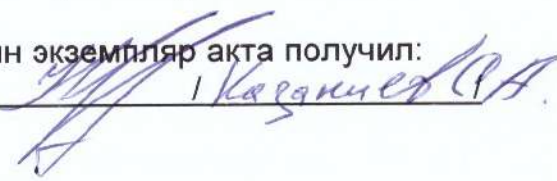 н экземпляр акта получил:
/ Казанцев С.А.